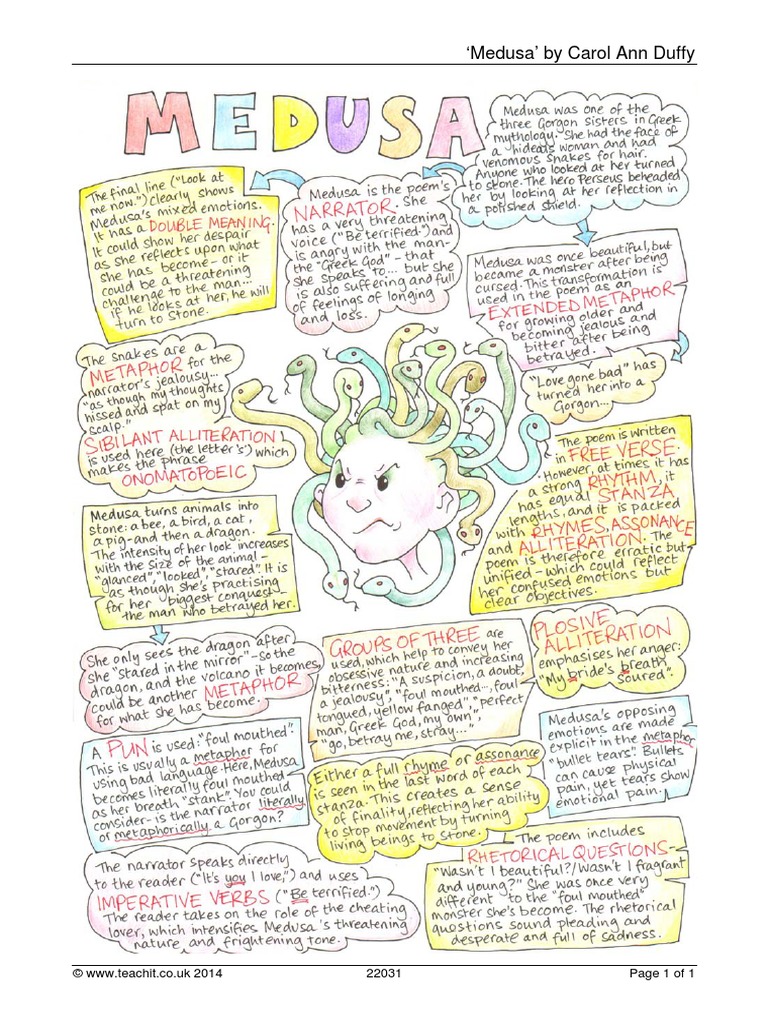 ‘Medusa’ by Carol Ann Duffy
MEDUSA
Medusa was one of the
three Gorgon sisters in Greek
mythology. She had the face of
a hideous woman and had
venomous snakes for hair.
Anyone who looked at her turned
to stone. The hero Perseus beheaded
her by looking at her reflection in
a polished shield.
Medusa is the poem's
NARRATOR. She
has a very threatening
voice ("Be terrified") and
is angry with the man-
the "Greek God" - that
she speaks to... but she
is also suffering and full
of feelings of longing
and loss.
The final line ("Look at
me now.") clearly shows
Medusa's mixed emotions.
It has a DOUBLE MEANING.
It could show her despair
as she reflects upon what
she has become - or it
could be a threatening
challenge to the man...
if he looks at her, he will
turn to stone.
Medusa was once beautiful, but
became a monster after being
cursed. This transformation is
used in the poem as an
EXTENDED METAPHOR
for growing older and
becoming jealous and
bitter after being
betrayed.
"Love gone bad" has
turned her into a
Gorgon...
The snakes are a
METAPHOR for the
narrator's jealousy...
"as though my thoughts
hissed and spat on my
scalp."
SIBILANT ALLITERATION
is used here (the letter 's') which
makes the phrase
ONOMATOPOEIC
The poem is written
in FREE VERSE.
However, at times it has
a strong RHYTHM, it
has equal STANZA
lengths, and it is packed
with RHYMES, ASSONANCE
and ALLITERATION. The
poem is therefore erratic but
unified - which could reflect
her confused emotions but
clear objectives.
Medusa turns animals into
stone: a bee, a bird, a cat,
a pig - and then a dragon.
The intensity of her look increases
with the size of the animal -
"glanced", "looked", "stared". It is
as though she's practising
for her biggest conquest-
the man who betrayed her.
She only sees the dragon after
she "stared in the mirror" - so the
dragon, and the volcano it becomes,
could be another METAPHOR
for what she has become.
GROUPS OF THREE are
used, which help to convey her
obsessive nature and increasing
bitterness: "A suspicion, a doubt,
a jealousy", "foul mouthed..., foul
tongued, yellow fanged", "perfect
man, Greek God, my own",
"go, betray me, stray...",
PLOSIVE
ALLITERATION
emphasises her anger:
"My bride's breath
soured".
A PUN is used: "foul mouthed".
This is usually a metaphor for
using bad language. Here, Medusa
becomes literally foul mouthed
as her breath "stank". You could
consider - is the narrator literally
or metaphorically a Gorgon?
Medusa's opposing
emotions are made
explicit in the metaphor
"bullet tears". Bullets
can cause physical
pain, yet tears show
emotional pain.
Either a full rhyme or assonance
is seen in the last word of each
stanza. This creates a sense
of finality, reflecting her ability
to stop movement by turning
living beings to stone.
The poem includes
RHETORICAL QUESTIONS-
"Wasn't I beautiful?/Wasn't I fragrant
and young?" She was once very
different to the "foul mouthed"
monster she's become. The rhetorical
questions sound pleading and
desperate and full of sadness.
The narrator speaks directly
to the reader ("It's you I love,") and uses
IMPERATIVE VERBS ("Be terrified.")
The reader takes on the role of the cheating
lover, which intensifies Medusa's threatening
nature and frightening tone.
© www.teachit.co.uk 2014 22031 Page 1 of 1